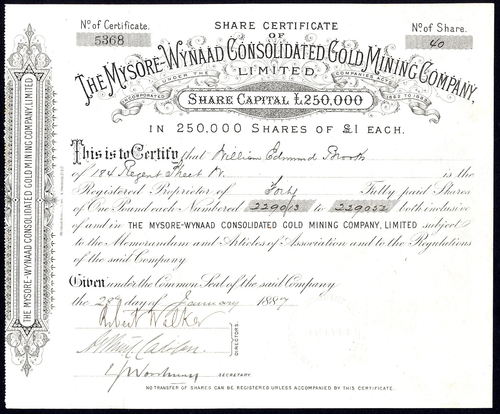 No. of Certificate.
5368
SHARE CERTIFICATE
OF
No. of Share.
40
THE MYSORE-WYNAAD CONSOLIDATED GOLD MINING COMPANY,
LIMITED.
INCORPORATED UNDER THE COMPANIES ACTS 1862 TO 1883
SHARE CAPITAL £250,000
IN 250,000 SHARES OF £1 EACH.
This is to Certify that William Edmund Brooks
of 184 Regent Street W. is the
Registered Proprietor of Forty Fully paid Shares
of One Pound each Numbered 229013 to 229052 both inclusive
of and in THE MYSORE-WYNAAD CONSOLIDATED GOLD MINING COMPANY, LIMITED subject
to the Memorandum and Articles of Association and to the Regulations
of the said Company
Given under the Common Seal of the said Company
the 28th day of January 1887
Robert Walker
DIRECTORS.
SECRETARY
NO TRANSFER OF SHARES CAN BE REGISTERED UNLESS ACCOMPANIED BY THIS CERTIFICATE.
THE MYSORE-WYNAAD CONSOLIDATED GOLD MINING COMPANY, LIMITED